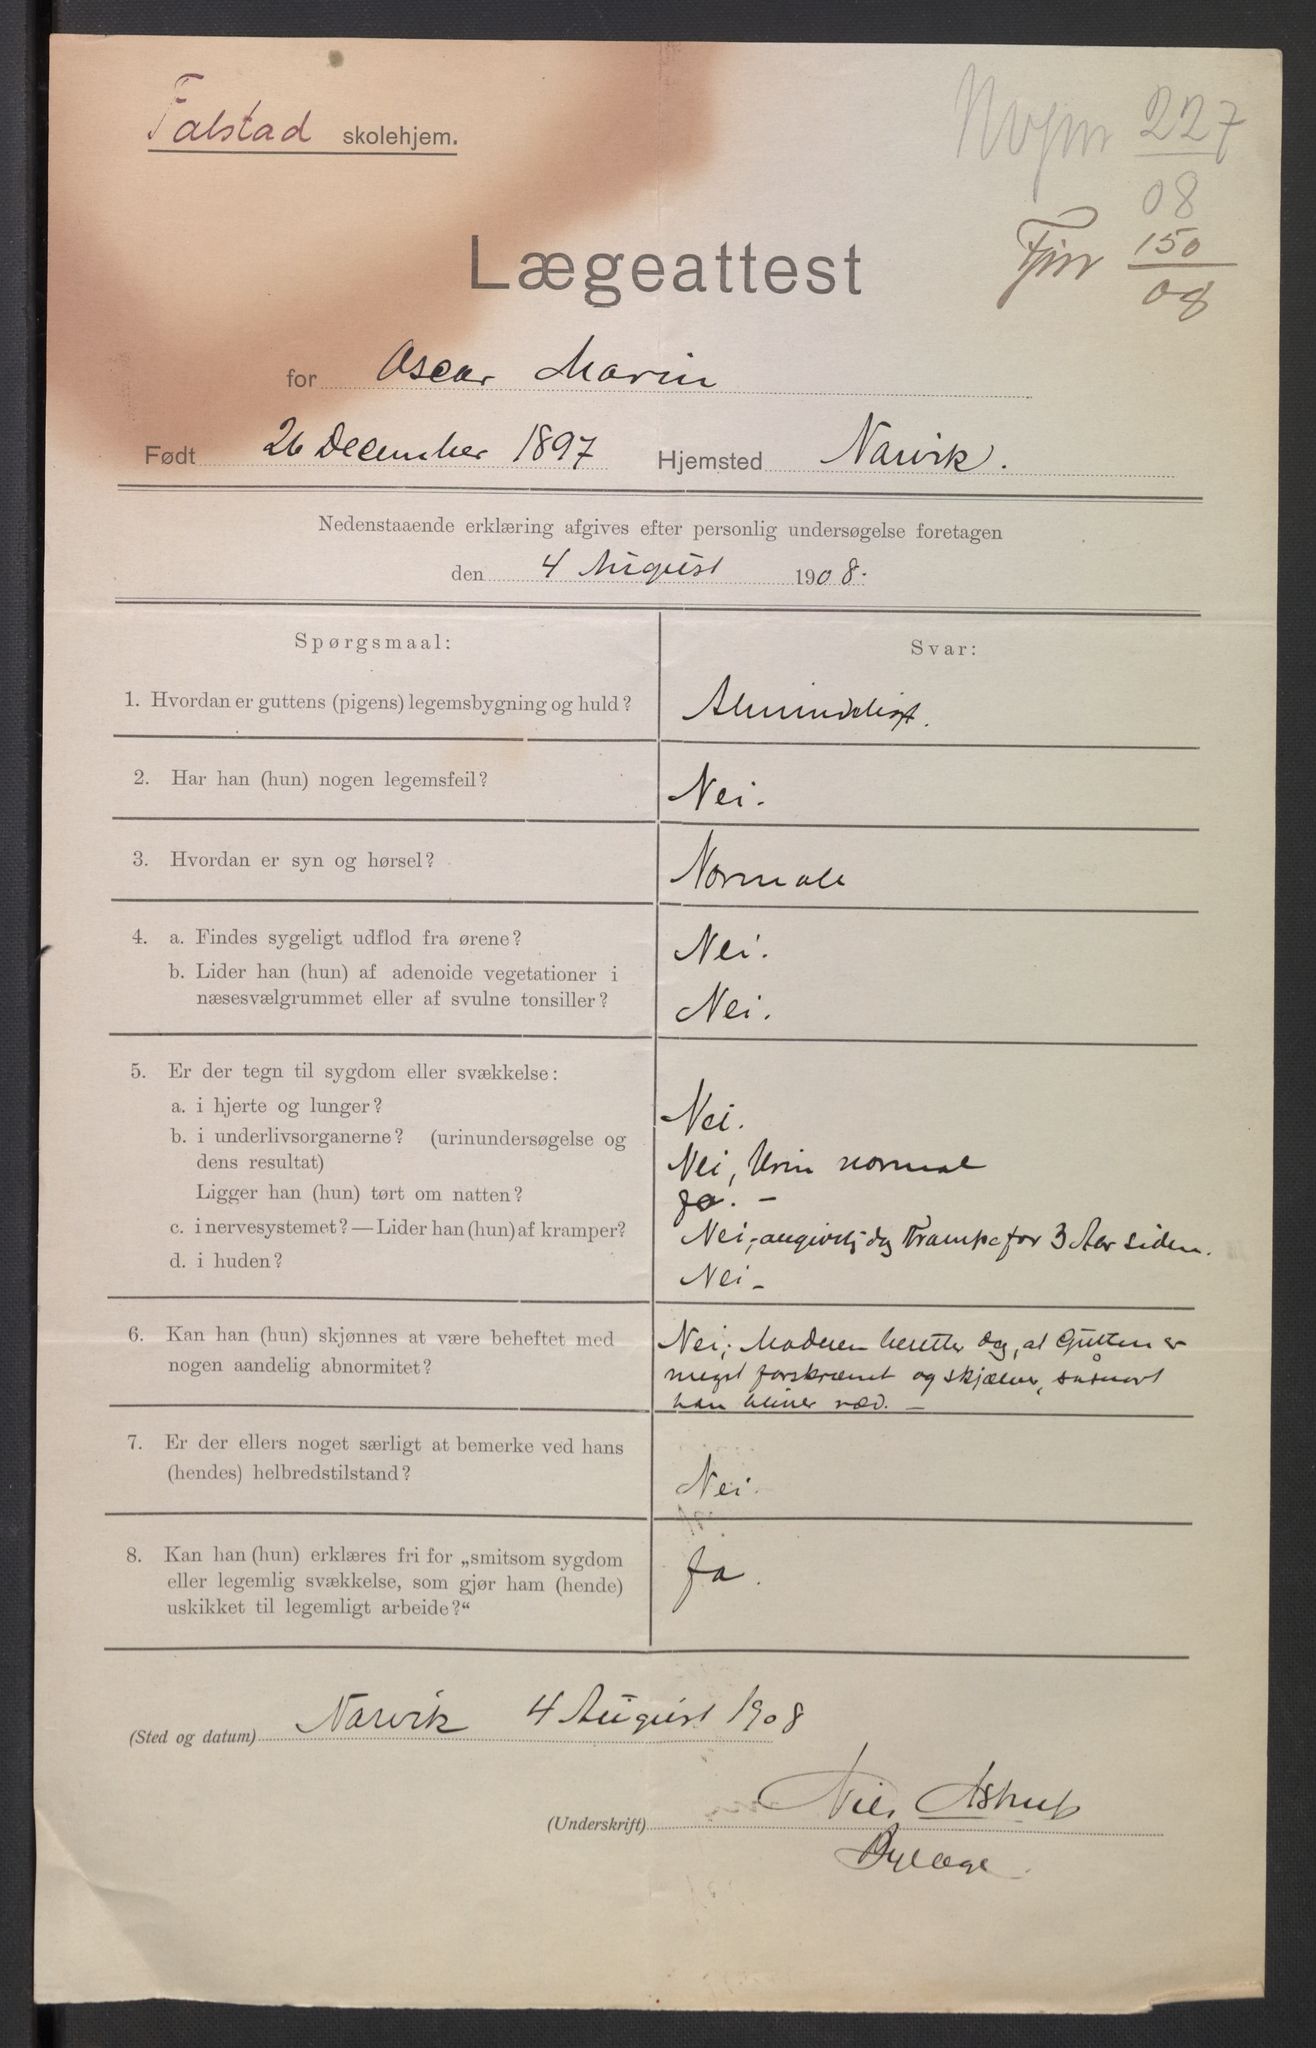 Falstad skolehjem.
227
08
150
08
Lægeattest
for Oscar Marin
Født 26 December 1897 Hjemsted Narvik.
Nedenstaaende erklæring afgives efter personlig undersøgelse foretagen
den 4 August 1908.
Spørgsmaal: Svar:
1. Hvordan er guttens (pigens) legemsbygning og huld? Almindeligt.
2. Har han (hun) nogen legemsfeil? Nei.
3. Hvordan er syn og hørsel? Normale
4. a. Findes sygeligt udflod fra ørene? Nei.
b. Lider han (hun) af adenoide vegetationer i
næsesvælgrummet eller af svulne tonsiller? Nei.
5. Er der tegn til sygdom eller svækkelse:
a. i hjerte og lunger? Nei.
b. i underlivsorganerne? (urinundersøgelse og
dens resultat) Nei, Urin normal
Ligger han (hun) tørt om natten? Ja. –
c. i nervesystemet? — Lider han (hun) af kramper? Nei, angivelig dog Krampe for 3 Aar siden.
d. i huden? Nei –
6. Kan han (hun) skjønnes at være beheftet med
nogen aandelig abnormitet?
Nei; Moderen beretter dog, at Gutten er
meget forskræmt og skjælver, såsnart
han bliver ræd. –
7. Er der ellers noget særligt at bemerke ved hans
(hendes) helbredstilstand? Nei.
8. Kan han (hun) erklæres fri for „smitsom sygdom
eller legemlig svækkelse, som gjør ham (hende)
uskikket til legemligt arbeide?“ Ja.
(Sted og datum) Narvik 4 August 1908
(Underskrift) Nils Astrup
Bylæge